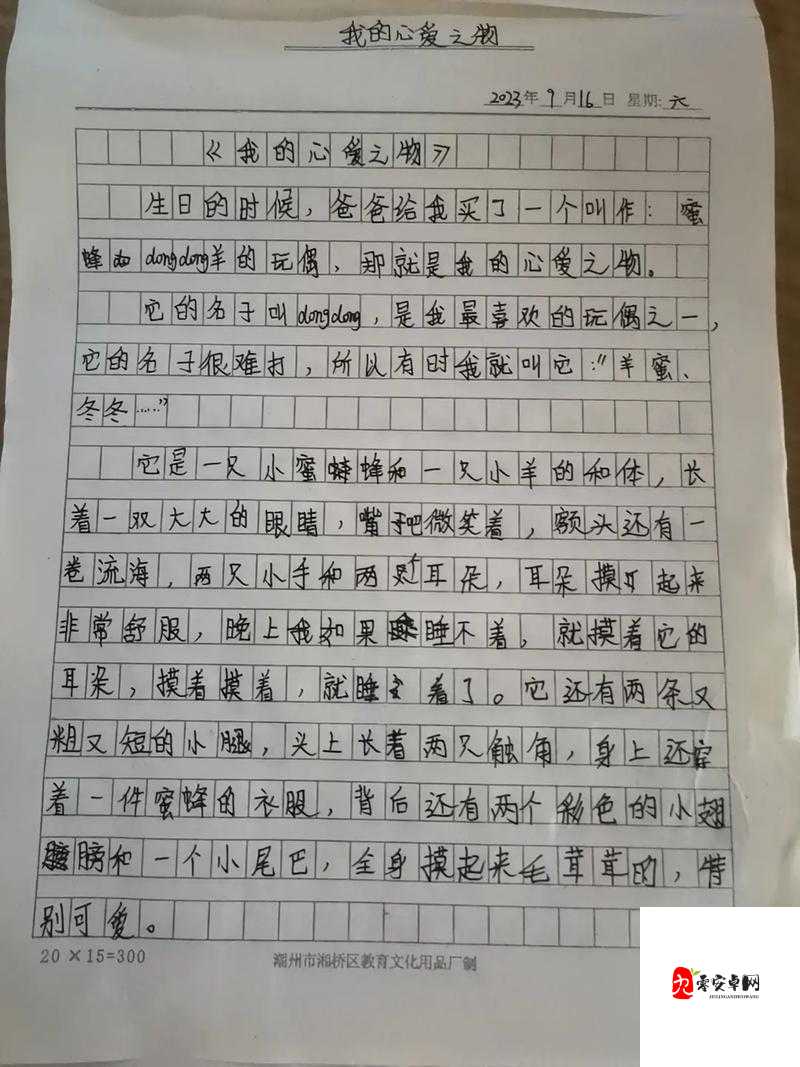 我的心爱之物
2023年9月16日 星期:六
《我的心爱之物》
生日的时候，爸爸给我买了一个叫作：蜜
蜂dongdong羊的玩偶，那就是我的心爱之物。
它的名子叫dongdong，是我最喜欢的玩偶之一，
它的名子很难打，所以有时我就叫它：“羊蜜、
冬冬……”
它是一只小蜜蜂和一只小羊的和体，长
着一双大大的眼睛，嘴吧微笑着，额头还有一
卷流海，两只小手和两个耳朵，耳朵摸起来
非常舒服，晚上我如果睡不着，就摸着它的
耳朵，摸着摸着，就睡着了。它还有两条又
粗又短的小腿，头上长着两只触角，身上还穿
着一件蜜蜂的衣服，背后还有两个彩色的小翅
膀和一个小尾巴，全身摸起来毛茸茸的，特
别可爱。
20×15=300
潮州市湘桥区教育文化用品厂制
零安卓网